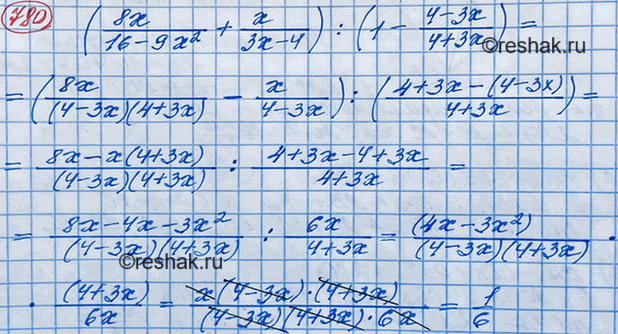 780 (8x/(16-9x²) + x/(3x-4)) : (1 - (4-3x)/(4+3x)) =
©reshak.ru
= (8x/((4-3x)(4+3x)) - x/(4-3x)) : ((4+3x-(4-3x))/(4+3x)) =
= (8x-x(4+3x))/((4-3x)(4+3x)) : (4+3x-4+3x)/(4+3x) =
= (8x-4x-3x²)/((4-3x)(4+3x)) : 6x/(4+3x) = (4x-3x²)/((4-3x)(4+3x)) ·
©reshak.ru
· (4+3x)/6x = (x(4-3x)·(4+3x))/((4-3x)(4+3x)·6x) = 1/6